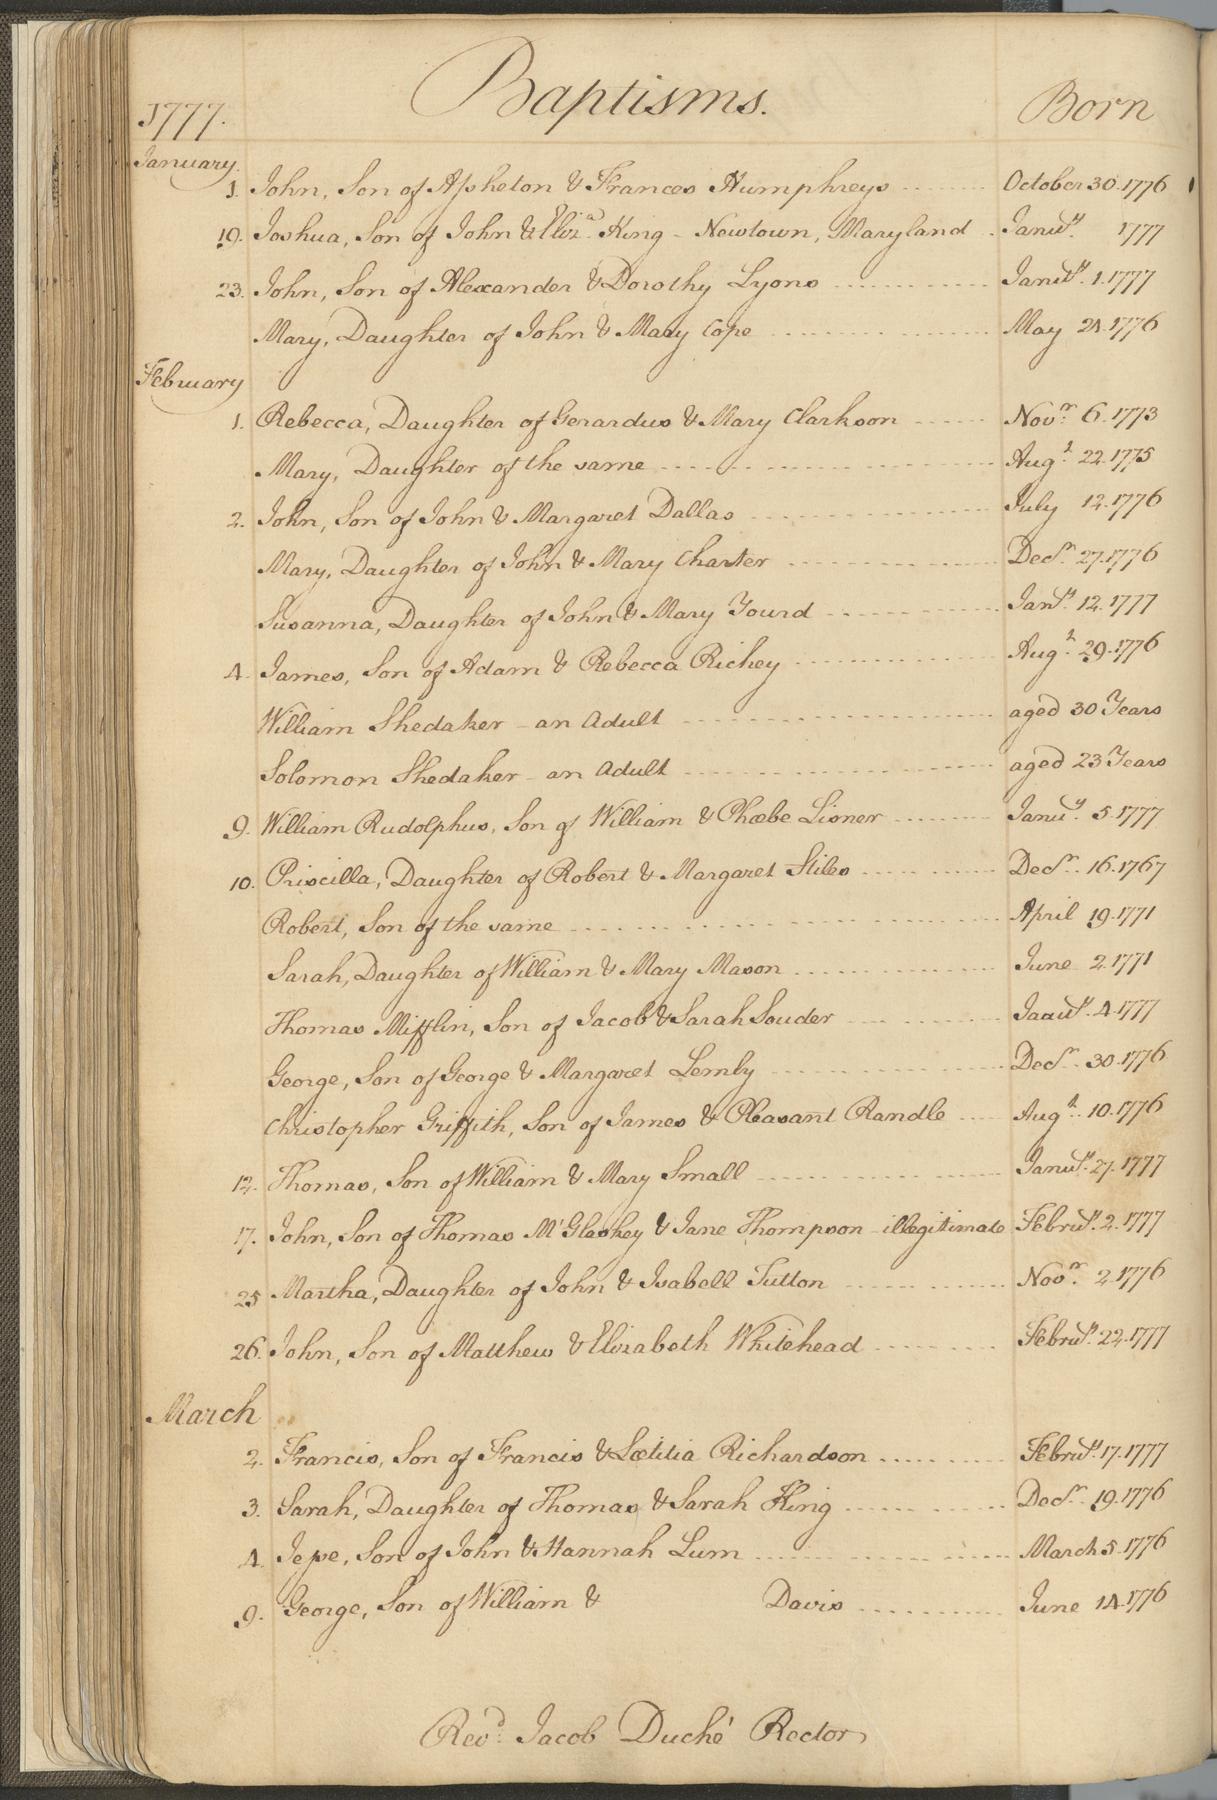 1777. Baptisms. Born
January.
1. John, Son of Assheton & Frances Humphreys October 30. 1776
19. Joshua, Son of John & Eliz.a King - Newtown, Maryland. Janu.y 1777
23. John, Son of Alexander & Dorothy Lyons Janu.y 1. 1777
Mary, Daughter of John & Mary Cope May 24. 1776
February
1. Rebecca, Daughter of Gerardus & Mary Clarkson Nov.r 6. 1773
Mary, Daughter of the same Aug.t 22. 1775
2. John, Son of John & Margaret Dallas July 12. 1776
Mary, Daughter of John & Mary Charter Dec.r 27. 1776
Susanna, Daughter of John & Mary Yourd Jan.y 12. 1777
4. James, Son of Adam & Rebecca Richey Aug.t 29. 1776
William Shedaker - an Adult aged 30 Years
Solomon Shedaker - an Adult aged 23 Years
9. William Rudolphus, Son of William & Phœbe Lisner Janu.y 5. 1777
10. Priscilla, Daughter of Robert & Margaret Stiles Dec.r 16. 1767
Robert, Son of the same April 19. 1771
Sarah, Daughter of William & Mary Mason June 2. 1771
Thomas Mifflin, Son of Jacob & Sarah Souder Janu.y 4. 1777
George, Son of George & Margaret Lemby Dec.r 30. 1776
Christopher Griffith, Son of James & Pleasant Randle Aug.t 10. 1776
12. Thomas, Son of William & Mary Small Janu.y 27. 1777
17. John, Son of Thomas M'Glaskey & Jane Thompson - illegitimate Febru.y 2. 1777
25 Martha, Daughter of John & Isabell Tutton Nov.r 2. 1776
26. John, Son of Matthew & Elizabeth Whitehead Febru.y 22. 1777
March
2. Francis, Son of Francis & Lætitia Richardson Febru.y 17. 1777
3. Sarah, Daughter of Thomas & Sarah King Dec.r 19. 1776
4. Jesse, Son of John & Hannah Lum March 5. 1776
9. George, Son of William & Davis June 14. 1776
Rev.d Jacob Duché Rector